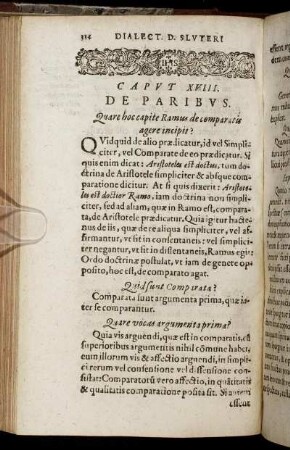 314 DIALECT. D. SLVTERI
CAPVT XVIII.
DE PARIBVS.
Quare hoc capite Ramus de comparatis
agere incipit?
QVidquid de alio prædicatur, id vel Simpli-
citer, vel Comparate de eo prædicatur. Si
quis enim dicat: Aristoteles est doctus, tum do-
ctrina de Aristotele simpliciter & absque com-
paratione dicitur. At si quis dixerit: Aristote-
les est doctior Ramo, iam doctrina non simpli-
citer, sed ad aliam, quæ in Ramo est, compara-
ta, de Aristotele prædicatur. Quia igitur hacte-
nus de iis, quæ re aliqua simpliciter, vel af-
firmantur, vt fit in consentaneis: vel simplici-
ter negantur, vt fit in dissentaneis, Ramus egit:
Ordo doctrinæ postulat, vt iam de genete op-
posito, hoc est, de comparato agat.
Quid sunt Comparata?
Comparata sunt argumenta prima, quæ in-
ter se comparantur.
Quare vocas argumenta prima?
Quia vis arguendi, quæ est in comparatis, cū
superioribus argumentis nihil cōmune habet,
eum illorum vis & affectio arguendi, in simpli-
ci rerum vel consensione vel dissensione con-
sistat: Comparatorū vero affectio, in quātitatis
& qualitatis comparatione posita sit. Si autem
essent